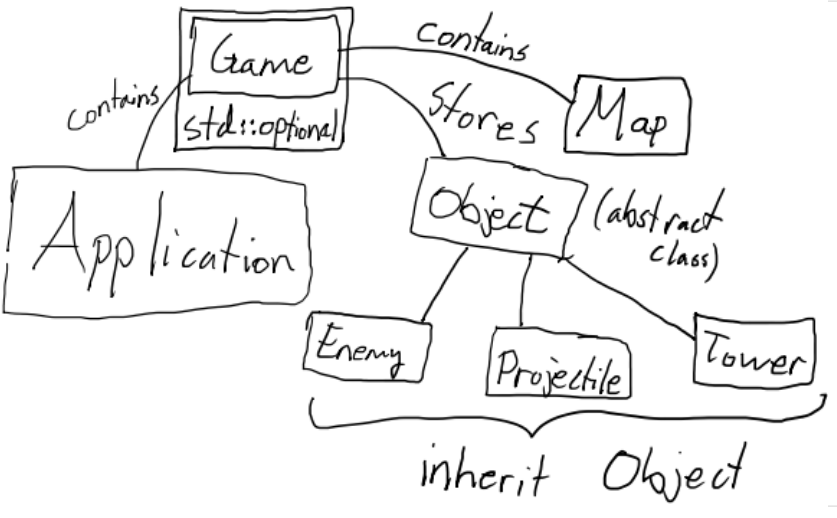 Game
contains
contains
std::optional
Stores
Map
Application
Object
(abstract
class)
Enemy
Projectile
Tower
inherit Object